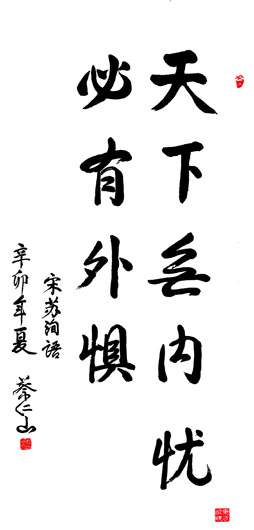 天下无内忧
必有外惧
宋苏洵语
辛卯年夏 蔡仁山